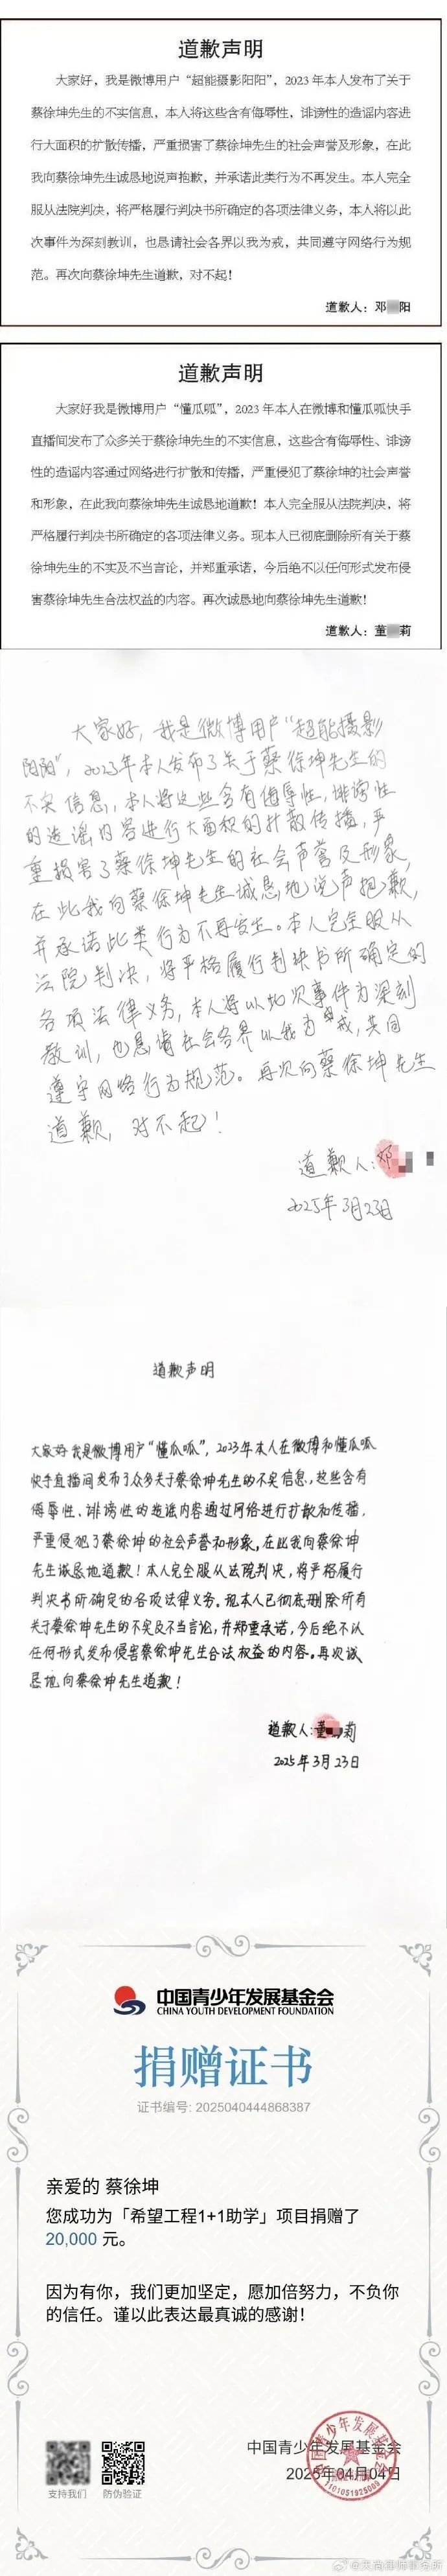 道歉声明
大家好，我是微博用户“超能摄影阳阳”，2023年本人发布了关于
蔡徐坤先生的不实信息，本人将这些含有侮辱性，诽谤性的造谣内容进
行大面积的扩散传播，严重损害了蔡徐坤先生的社会声誉及形象，在此
我向蔡徐坤先生诚恳地说声抱歉，并承诺此类行为不再发生。本人完全
服从法院判决，将严格履行判决书所确定的各项法律义务，本人将以此
次事件为深刻教训，也恳请社会各界以我为戒，共同遵守网络行为规
范。再次向蔡徐坤先生道歉，对不起！
道歉人：邓 阳
道歉声明
大家好我是微博用户“懂瓜呱”，2023年本人在微博和懂瓜呱快手
直播间发布了众多关于蔡徐坤先生的不实信息，这些含有侮辱性、诽谤
性的造谣内容通过网络进行扩散和传播，严重侵犯了蔡徐坤的社会声誉
和形象，在此我向蔡徐坤先生诚恳地道歉！本人完全服从法院判决，将
严格履行判决书所确定的各项法律义务。现本人已彻底删除所有关于蔡
徐坤先生的不实及不当言论，并郑重承诺，今后绝不以任何形式发布侵
害蔡徐坤先生合法权益的内容。再次诚恳地向蔡徐坤先生道歉！
道歉人：董 莉
大家好，我是微博用户“超能摄影
阳阳”，2023年本人发布了关于蔡徐坤先生的
不实信息，本人将这些含有侮辱性，诽谤性
的造谣内容进行大面积的扩散传播，严
重损害了蔡徐坤先生的社会声誉及形象，
在此我向蔡徐坤先生诚恳地说声抱歉，
并承诺此类行为不再发生。本人完全服从
法院判决，将严格履行判决书所确定的
各项法律义务，本人将以此次事件为深刻
教训，也恳请社会各界以我为戒，共同
遵守网络行为规范。再次向蔡徐坤先生
道歉，对不起！
道歉人：邓
2025年3月23日
道歉声明
大家好我是微博用户“懂瓜呱”，2023年本人在微博和懂瓜呱
快手直播间发布了众多关于蔡徐坤先生的不实信息，这些含有
侮辱性、诽谤性的造谣内容通过网络进行扩散和传播，
严重侵犯了蔡徐坤的社会声誉和形象，在此我向蔡徐坤
先生诚恳地道歉！本人完全服从法院判决，将严格履行
判决书所确定的各项法律义务。现本人已彻底删除所有
关于蔡徐坤先生的不实及不当言论，并郑重承诺，今后绝不以
任何形式发布侵害蔡徐坤先生合法权益的内容。再次诚
恳地向蔡徐坤先生道歉！
道歉人：董 莉
2025年3月23日
中国青少年发展基金会
CHINA YOUTH DEVELOPMENT FOUNDATION
捐赠证书
证书编号: 2025040444868387
亲爱的 蔡徐坤
您成功为「希望工程1+1助学」项目捐赠了
20,000 元。
因为有你，我们更加坚定，愿加倍努力，不负你
的信任。谨以此表达最真诚的感谢！
中国青少年发展基金会
2025年04月04日
支持我们 防伪验证